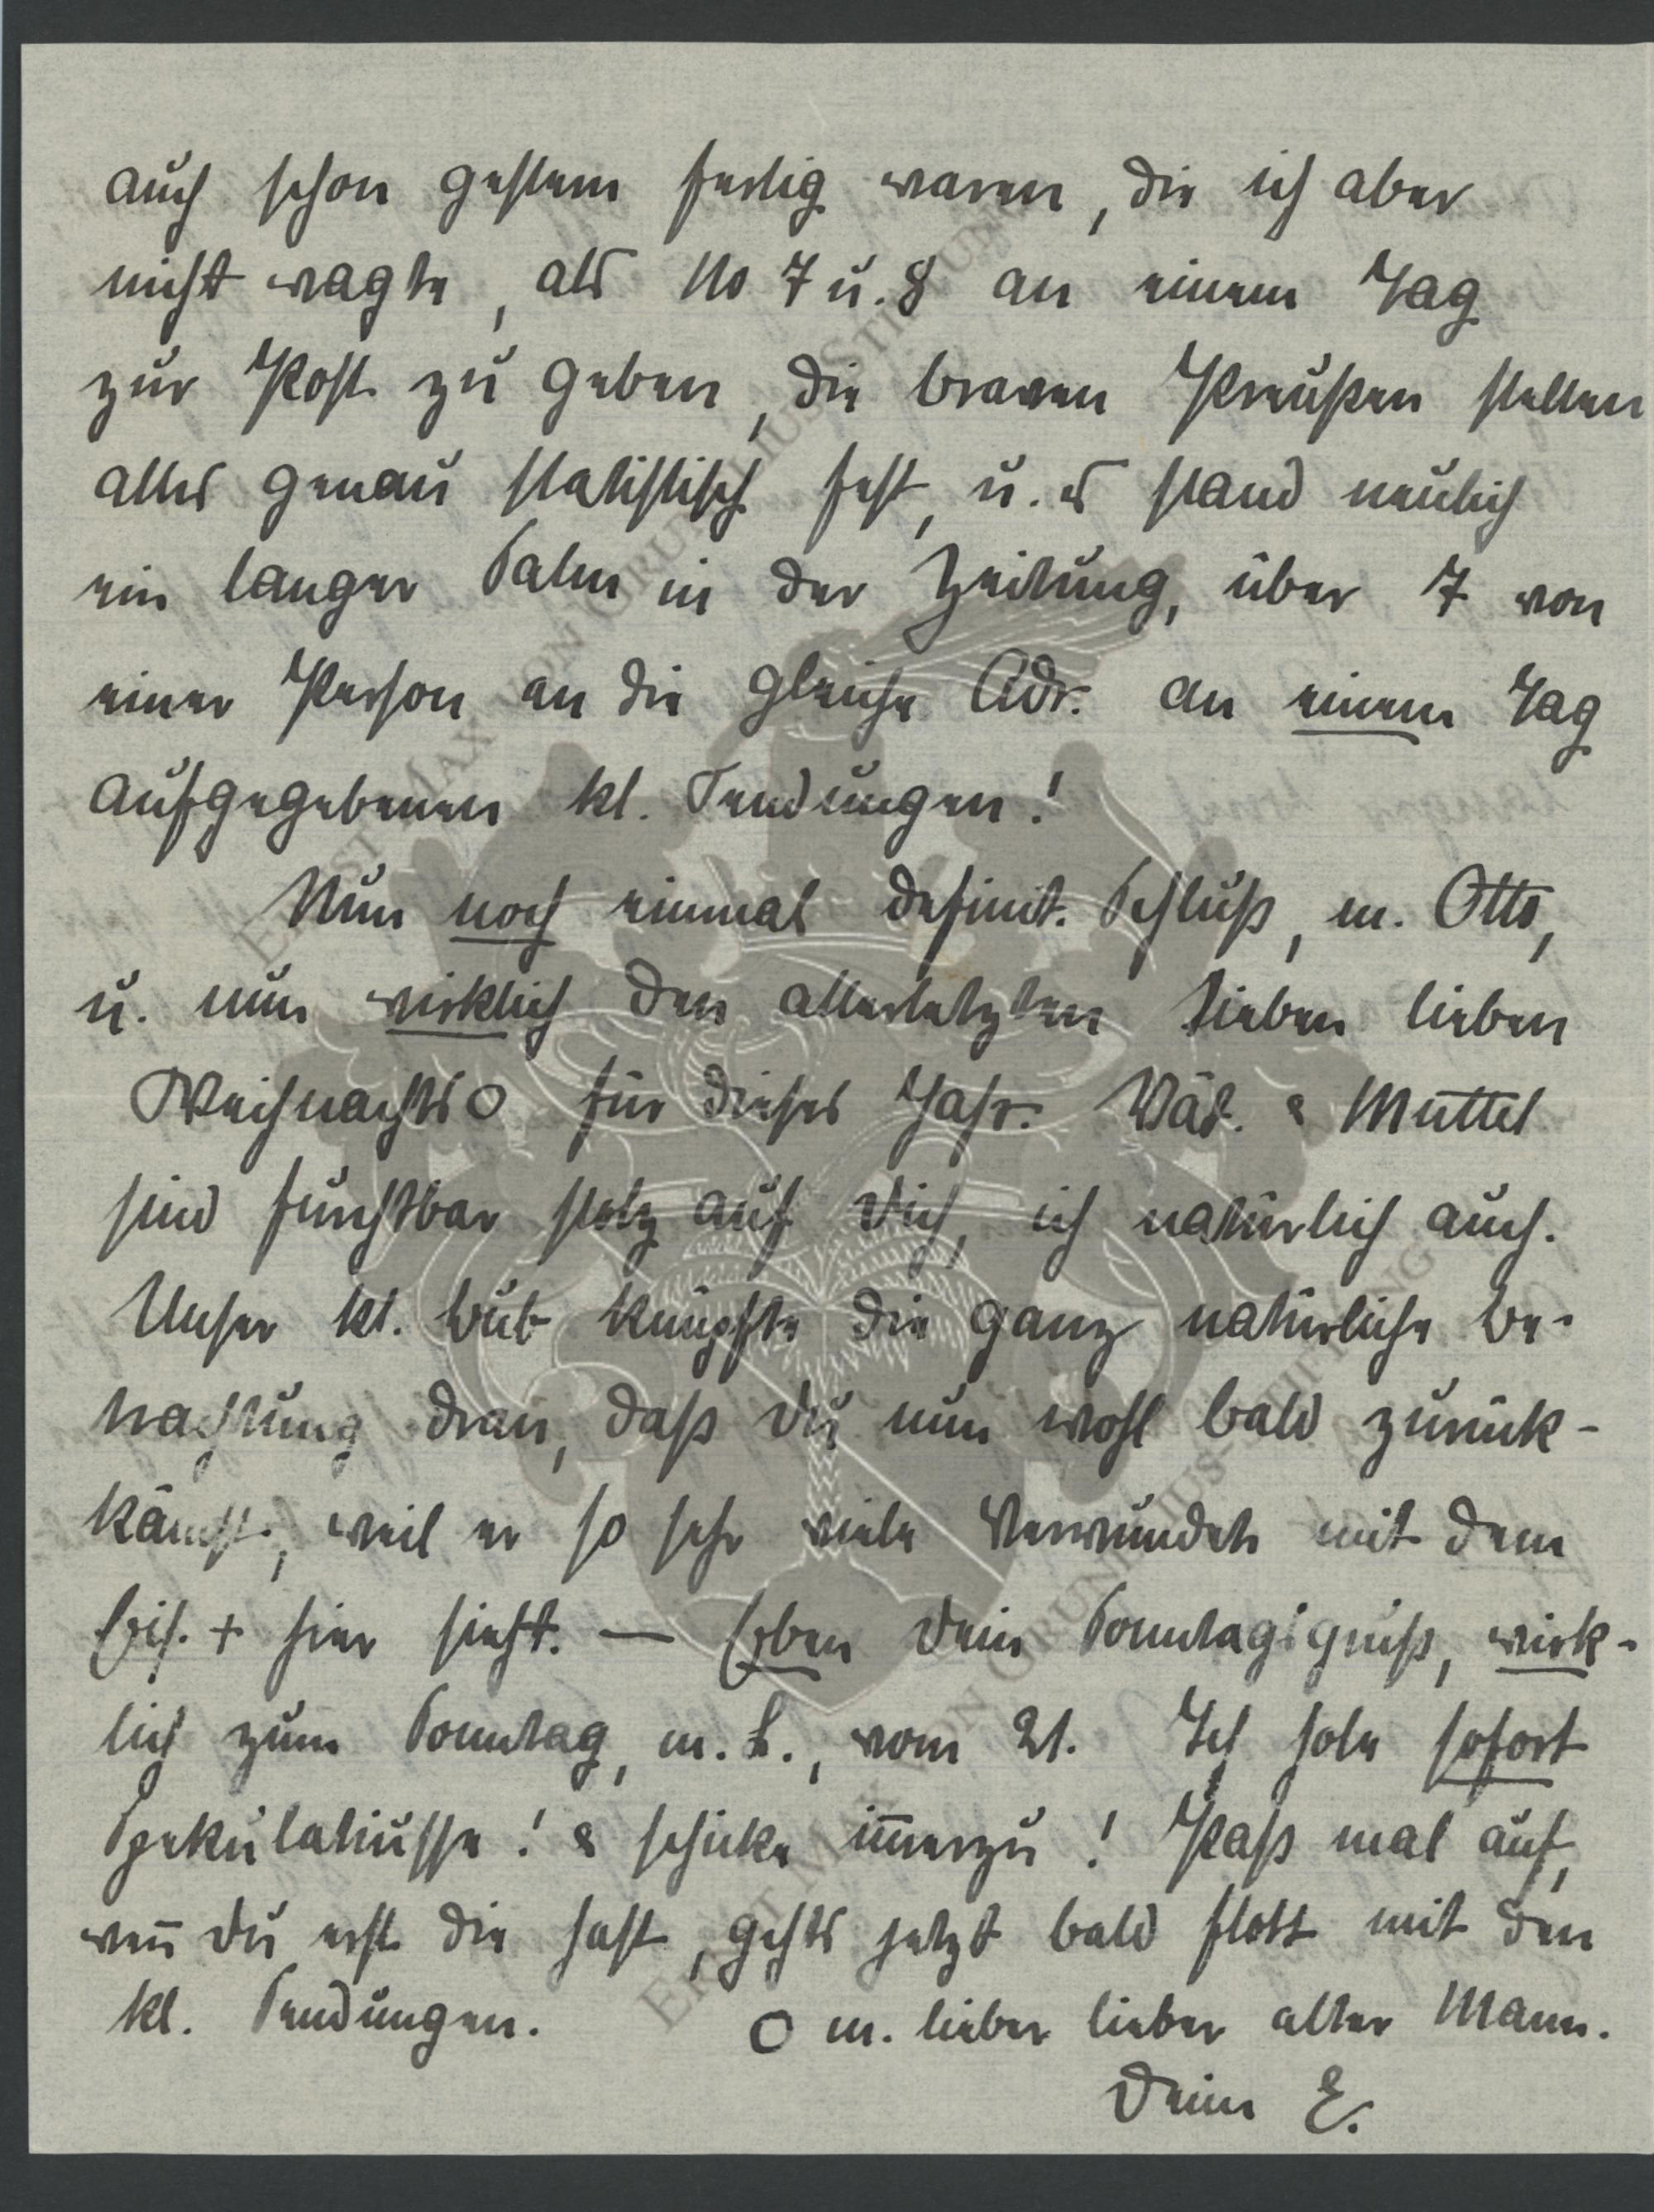 auch schon gestern fertig waren, die ich aber
nicht wagte, als No 7 u. 8 an einem Tag
zur Post zu geben, die braven Preußen stellen
alles genau statistisch fest, u. es stand neulich
ein langer Salm in der Zeitung, über 7 von
einer Person an die gleiche Adr. an einem Tag
aufgegebenen kl. Sendungen!
Nun noch einmal definit. Schluß, m. Otto,
u. nun wirklich den allerletzten lieben lieben
Weihnachts O für dieses Jahr. Vät. & Muttel
sind furchtbar stolz auf Dich, ich natürlich auch.
Unser kl. Bub knüpfte die ganz natürliche Be-
trachtung dran, daß Du nun wohl bald zurück-
kämst, weil er so sehr viele Verwundete mit dem
Eis. + hier sieht. — Eben Dein Sonntagsgruß, wirk-
lich zum Sonntag, m. L., vom 21. Ich hole sofort
Spekulatiusse! & schicke im̅erzu! Paß mal auf,
wen̅ Du erst die hast, gehts jetzt bald flott mit den
kl. Sendungen. O m. lieber lieber alter Mann.
Deine E.
ERNST MAX VON GRUNELIUS-STIFTUNG
ERNST MAX VON GRUNELIUS-STIFTUNG